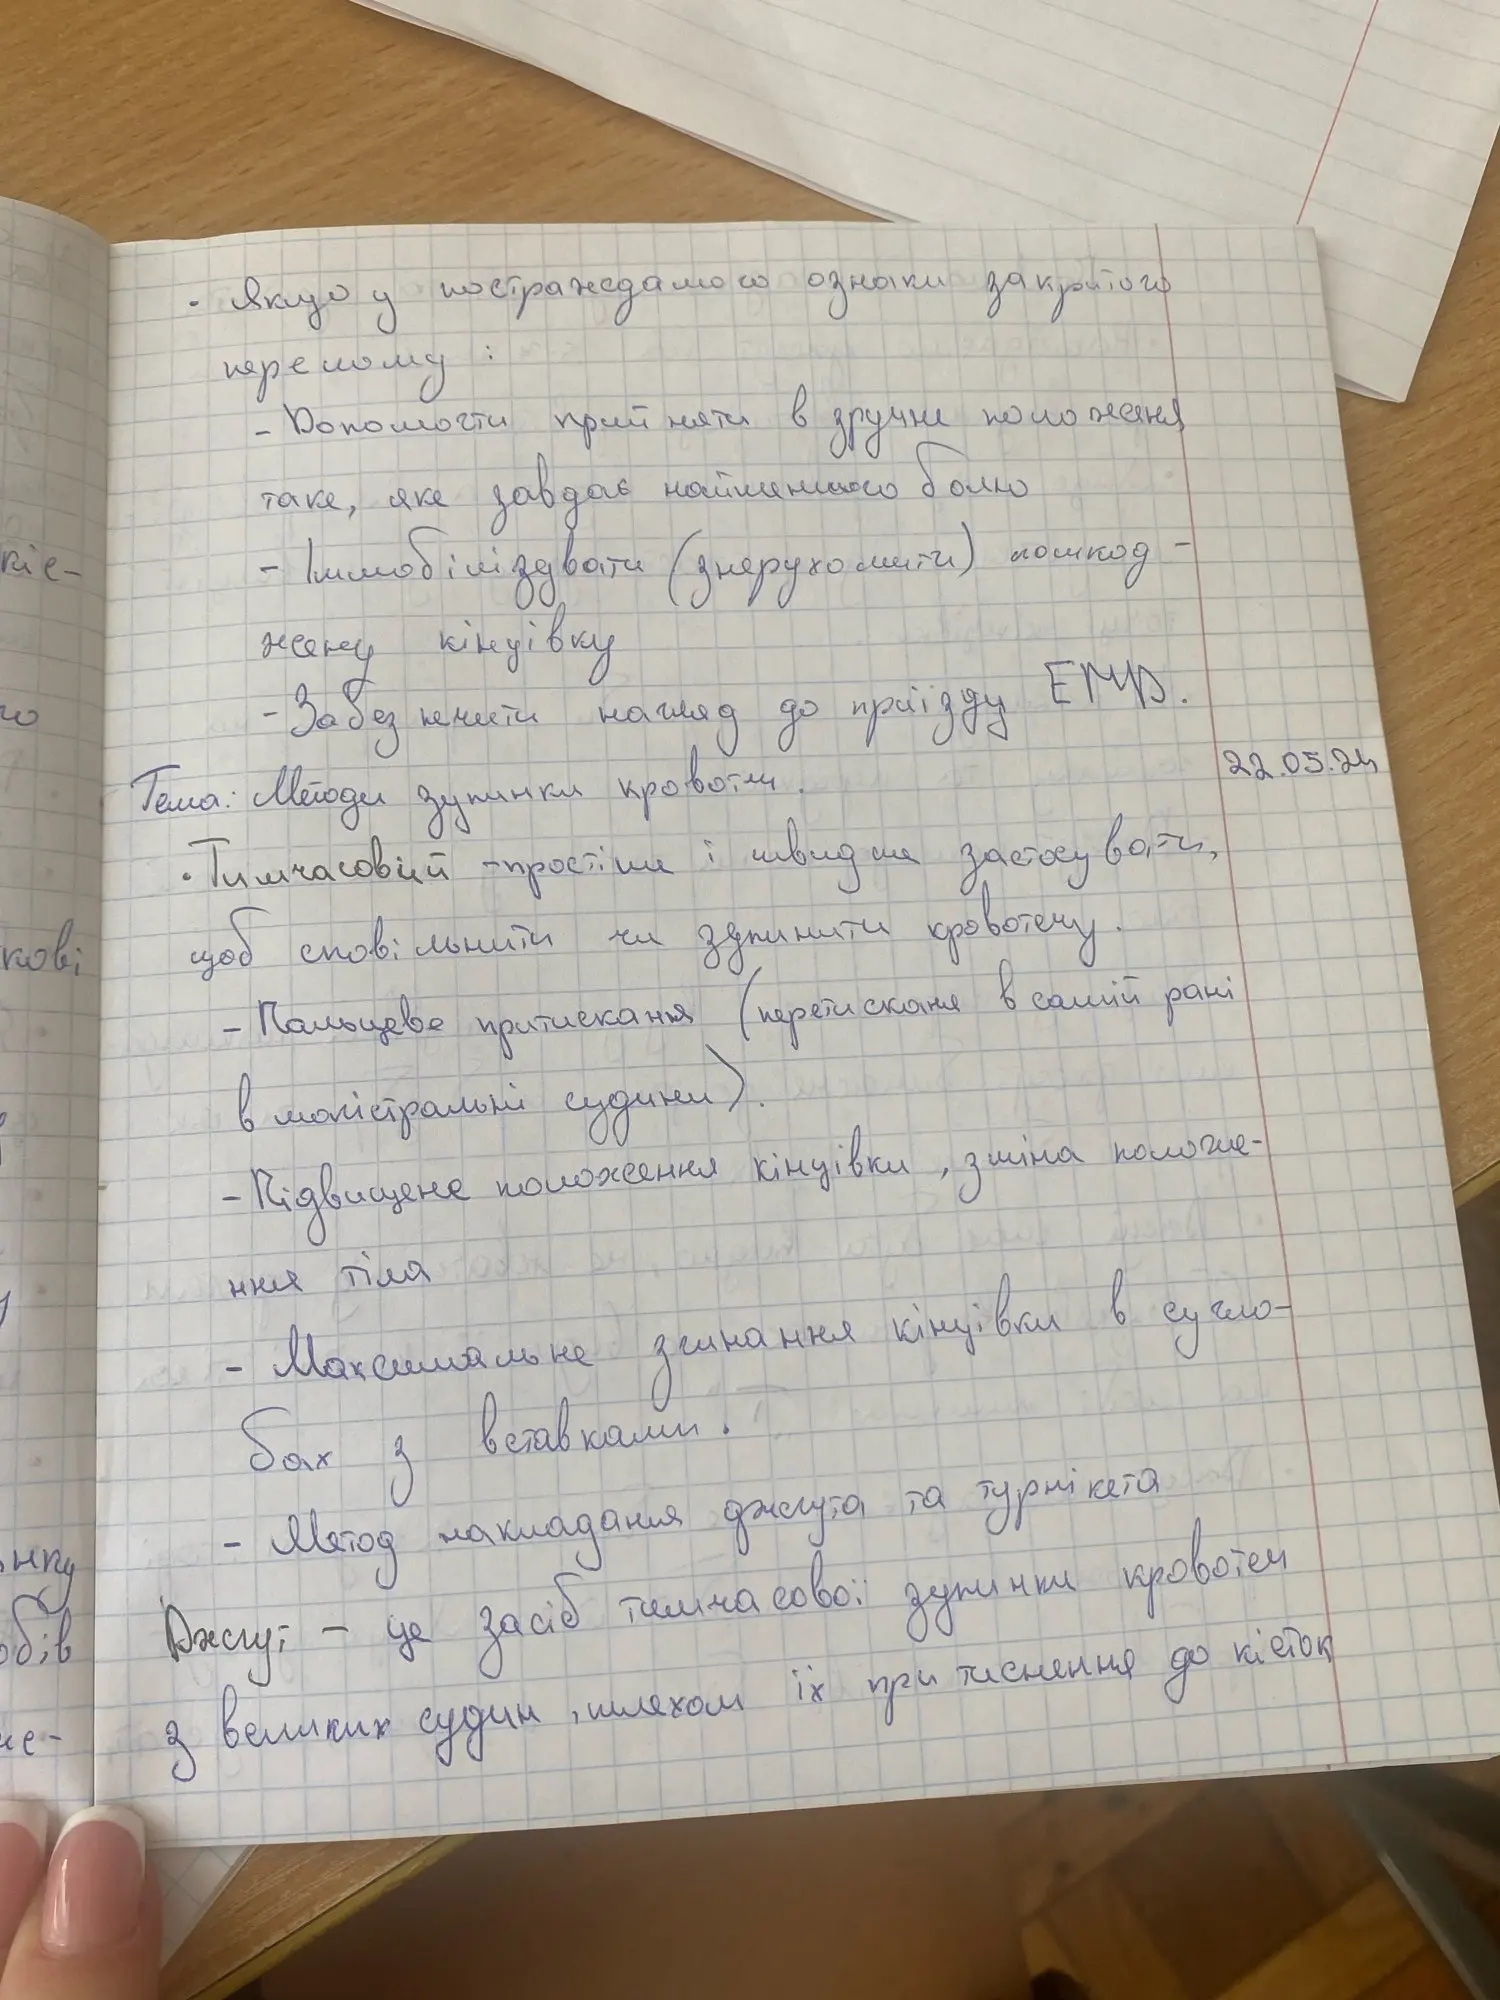 • Якщо у постраждалого ознаки закритого
перелому :
- Допомогти прийняти в зручне положеня
таке, яке завдає найменшого болю
- Іммобілізувати (знерухомити) пошкод-
жену кінцівку
- Забезпечити нагляд до приїзду ЕМД.
22.05.24
Тема: Методи зупинки кровотечі.
• Тимчасовий - простіше і швидше застосувати,
щоб сповільнити чи зупинити кровотечу.
- Пальцеве притискання (перетисканя в самій рані
в магістральні судини).
- Підвищене положення кінцівки, зміна положе-
ння тіла
- Максимальне згинання кінцівки в сугло-
бах з вставками.
- Метод накладання джгута та турнікета
Джгут - це засіб тимчасової зупинки кровотечі
з великих судин, шляхом їх притиснення до кісток
кіс-
го
кові
нку
обів
не-